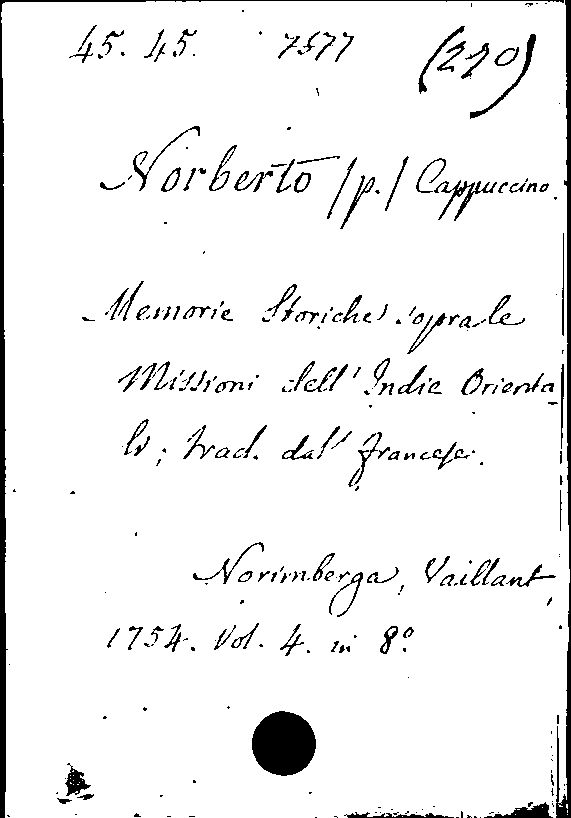 45. 45. 7577 (270)
Norberto /p./ Cappuccino.
Memorie Storiche sopra le
Missioni dell' Indie Orienta_
li; trad. dal' francese.
Norimberga, Vaillant,
1754. Vol. 4. in 8.º